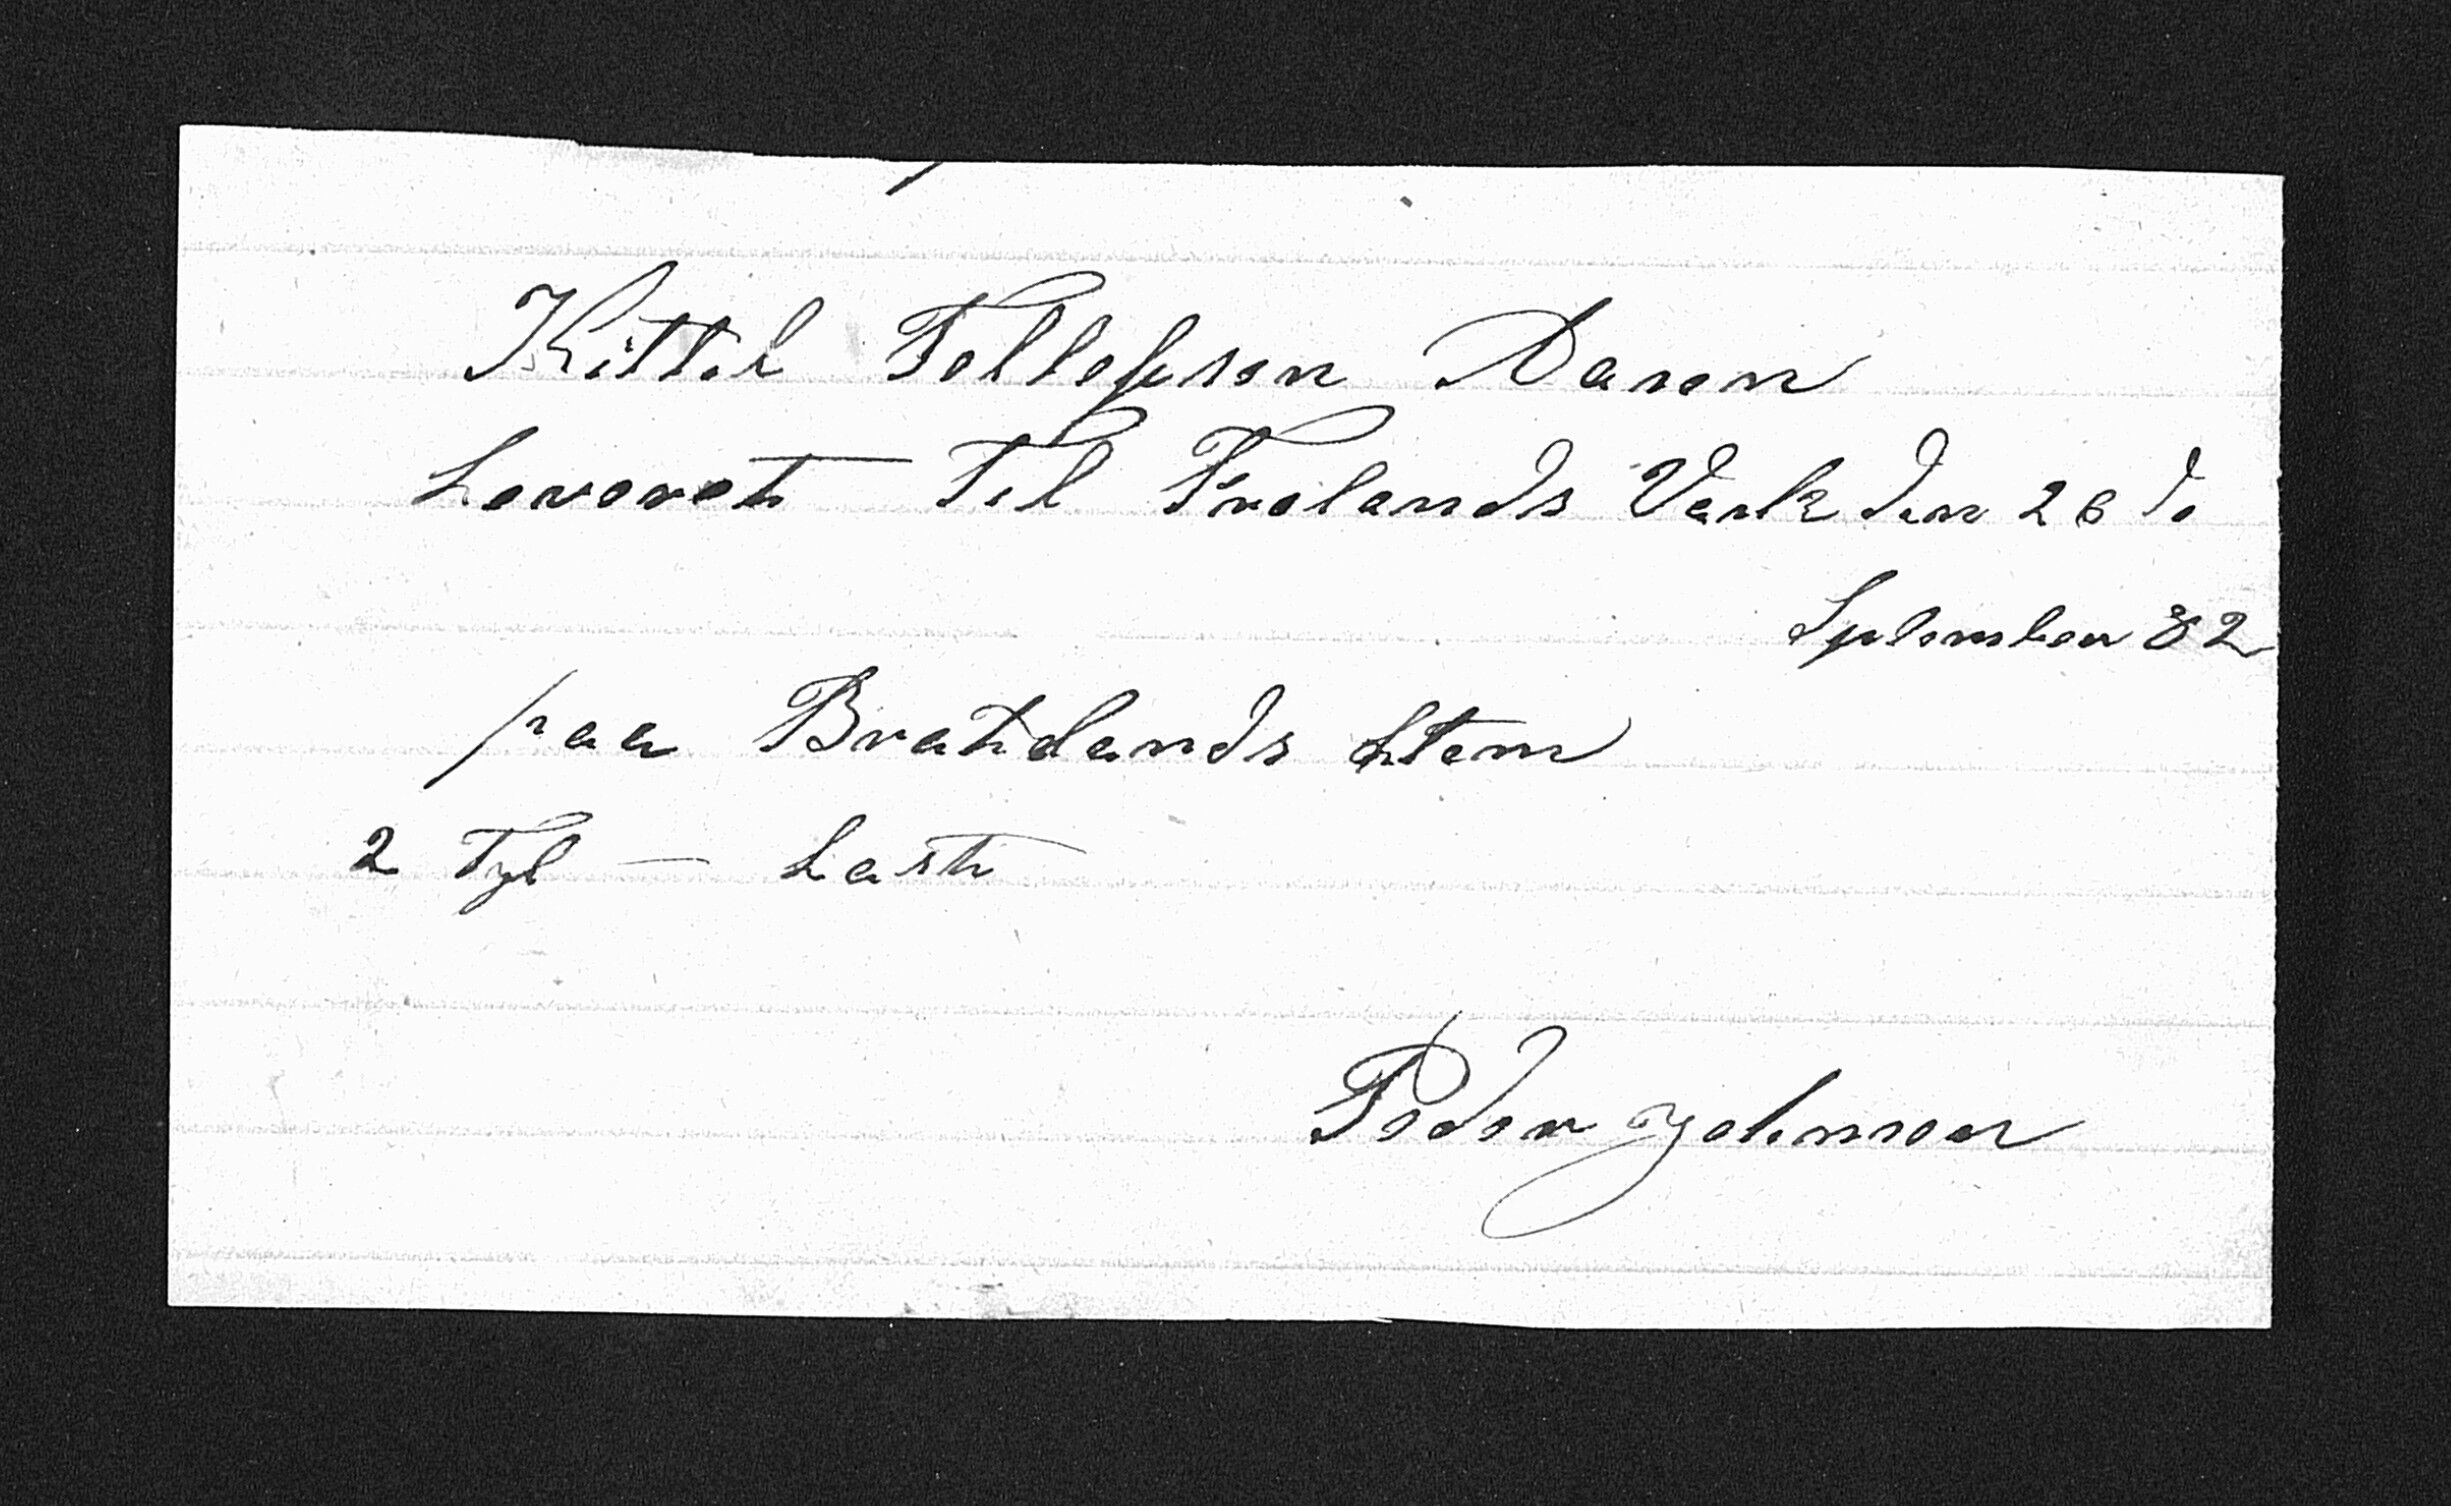 Kittel Tellefsen Dasen
Leveret Til Frolands Verk den 26 d.
September 82
paa Bratlands Stem
2 Tyl — Last
Peder Johnsen